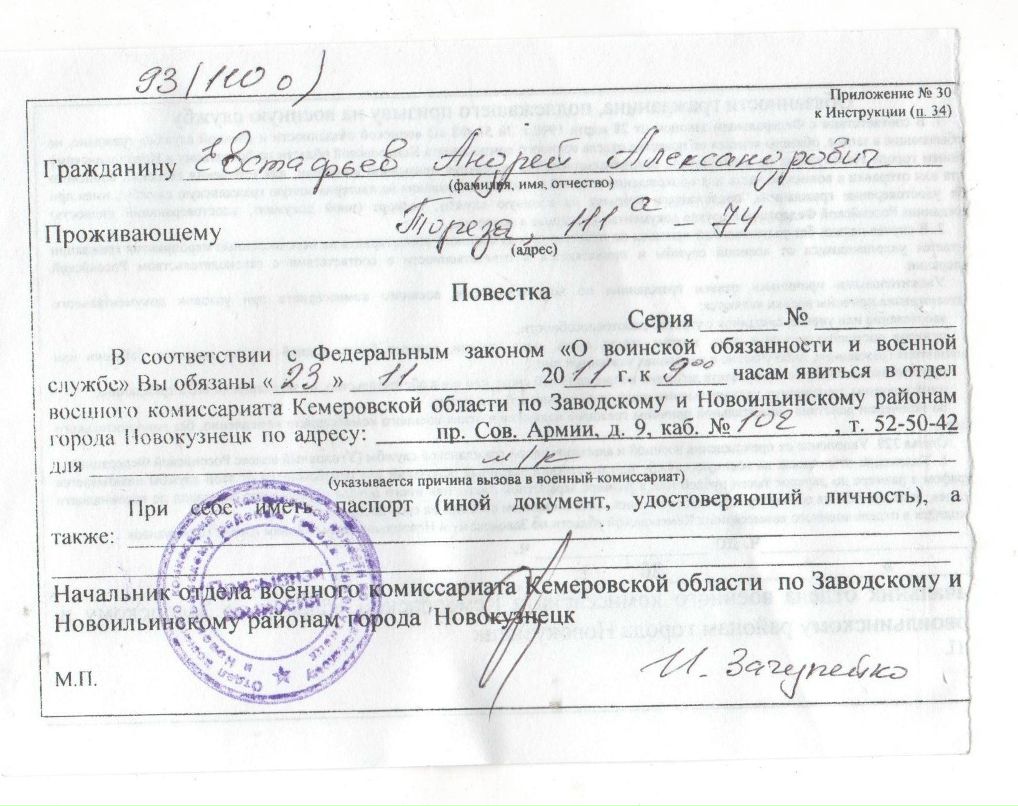 93 (110 о)
Приложение № 30
к Инструкции (п. 34)
Гражданину Евстафьев Андрей Александрович
(фамилия, имя, отчество)
Проживающему Тореза 111 а – 74
(адрес)
Повестка
Серия № 
В соответствии с Федеральным законом «О воинской обязанности и военной
службе» Вы обязаны «23» 11 2011 г. к 9⁰⁰ часам явиться в отдел
военного комиссариата Кемеровской области по Заводскому и Новоильинскому районам
города Новокузнецк по адресу: пр. Сов. Армии, д. 9, каб. № 102, т. 52-50-42
для м/к
(указывается причина вызова в военный комиссариат)
При себе иметь паспорт (иной документ, удостоверяющий личность), а
также:
Начальник отдела военного комиссариата Кемеровской области по Заводскому и
Новоильинскому районам города Новокузнецк
Призывная комиссия
И. Зачупейко
М.П.